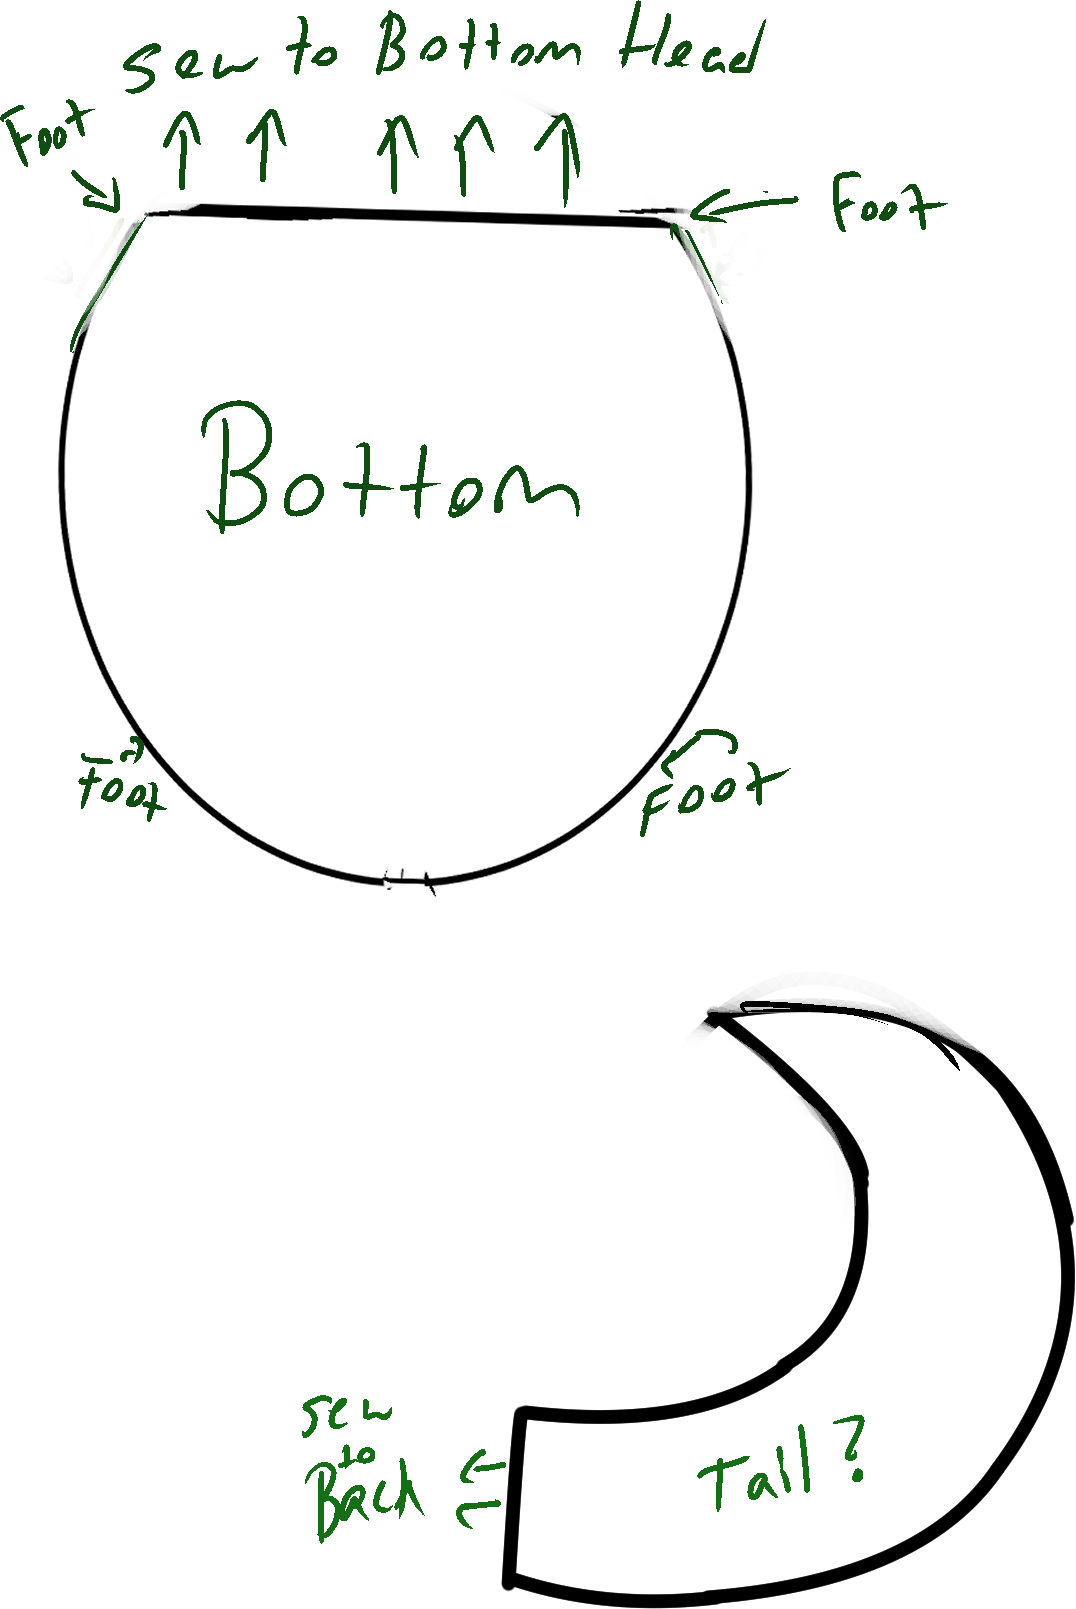 Sew to Bottom Head
Foot
Foot
Bottom
Foot
Foot
Sew
to
Back
Tail?